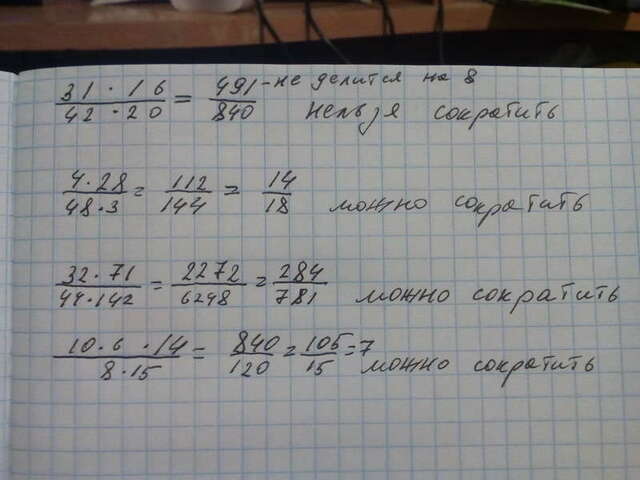 31 · 16 / 42 · 20 = 491 / 840 - не делится на 8 нельзя сократить
4 · 28 / 48 · 3 = 112 / 144 = 14 / 18 можно сократить
32 · 71 / 44 · 142 = 2272 / 6248 = 284 / 781 можно сократить
10 · 6 · 14 / 8 · 15 = 840 / 120 = 105 / 15 = 7 можно сократить